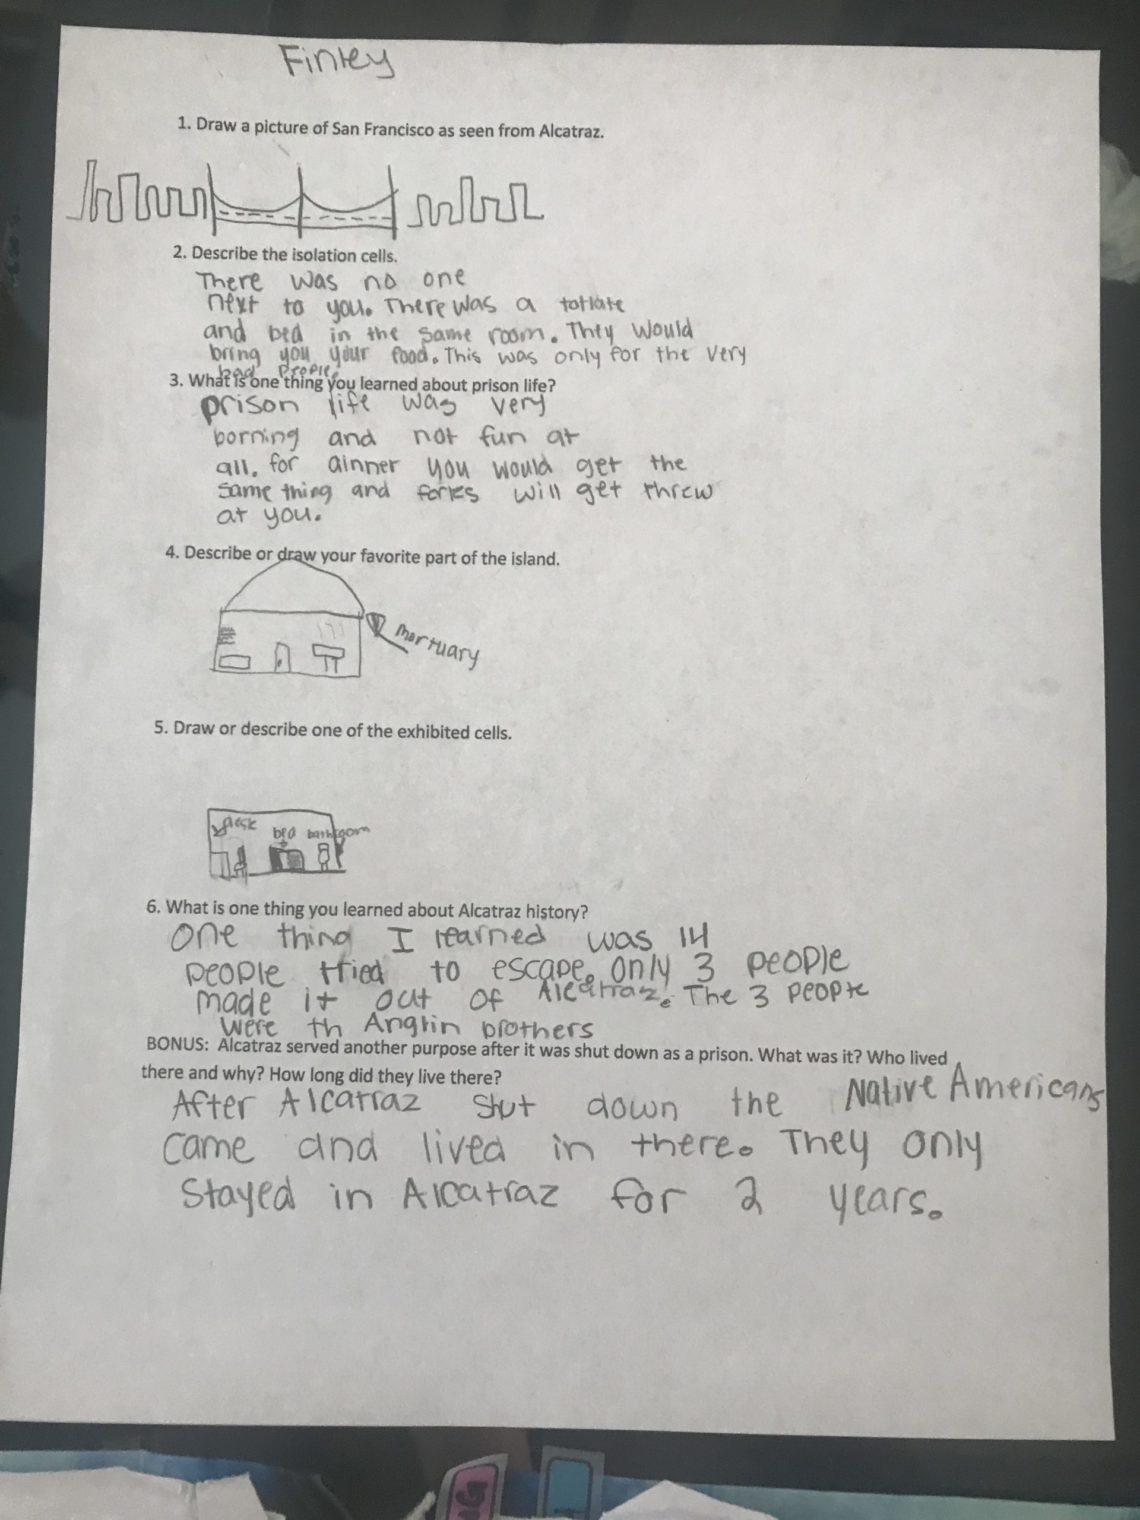 Finley
1. Draw a picture of San Francisco as seen from Alcatraz.
2. Describe the isolation cells.
There was no one
next to you. There was a totlate
and bed in the same room. They would
bring you your food. This was only for the very
bad people.
3. What is one thing you learned about prison life?
prison life was very
borning and not fun at
all. for dinner you would get the
same thing and forks will get threw
at you.
4. Describe or draw your favorite part of the island.
mortuary
5. Draw or describe one of the exhibited cells.
desk
bed bathroom
6. What is one thing you learned about Alcatraz history?
One thing I learned was 14
people tried to escape. only 3 people
made it out of Alcatraz. The 3 people
were th Anglin brothers
BONUS: Alcatraz served another purpose after it was shut down as a prison. What was it? Who lived
there and why? How long did they live there?
After Alcatraz shut down the Native Americans
came and lived in there. They only
stayed in Alcatraz for 2 years.